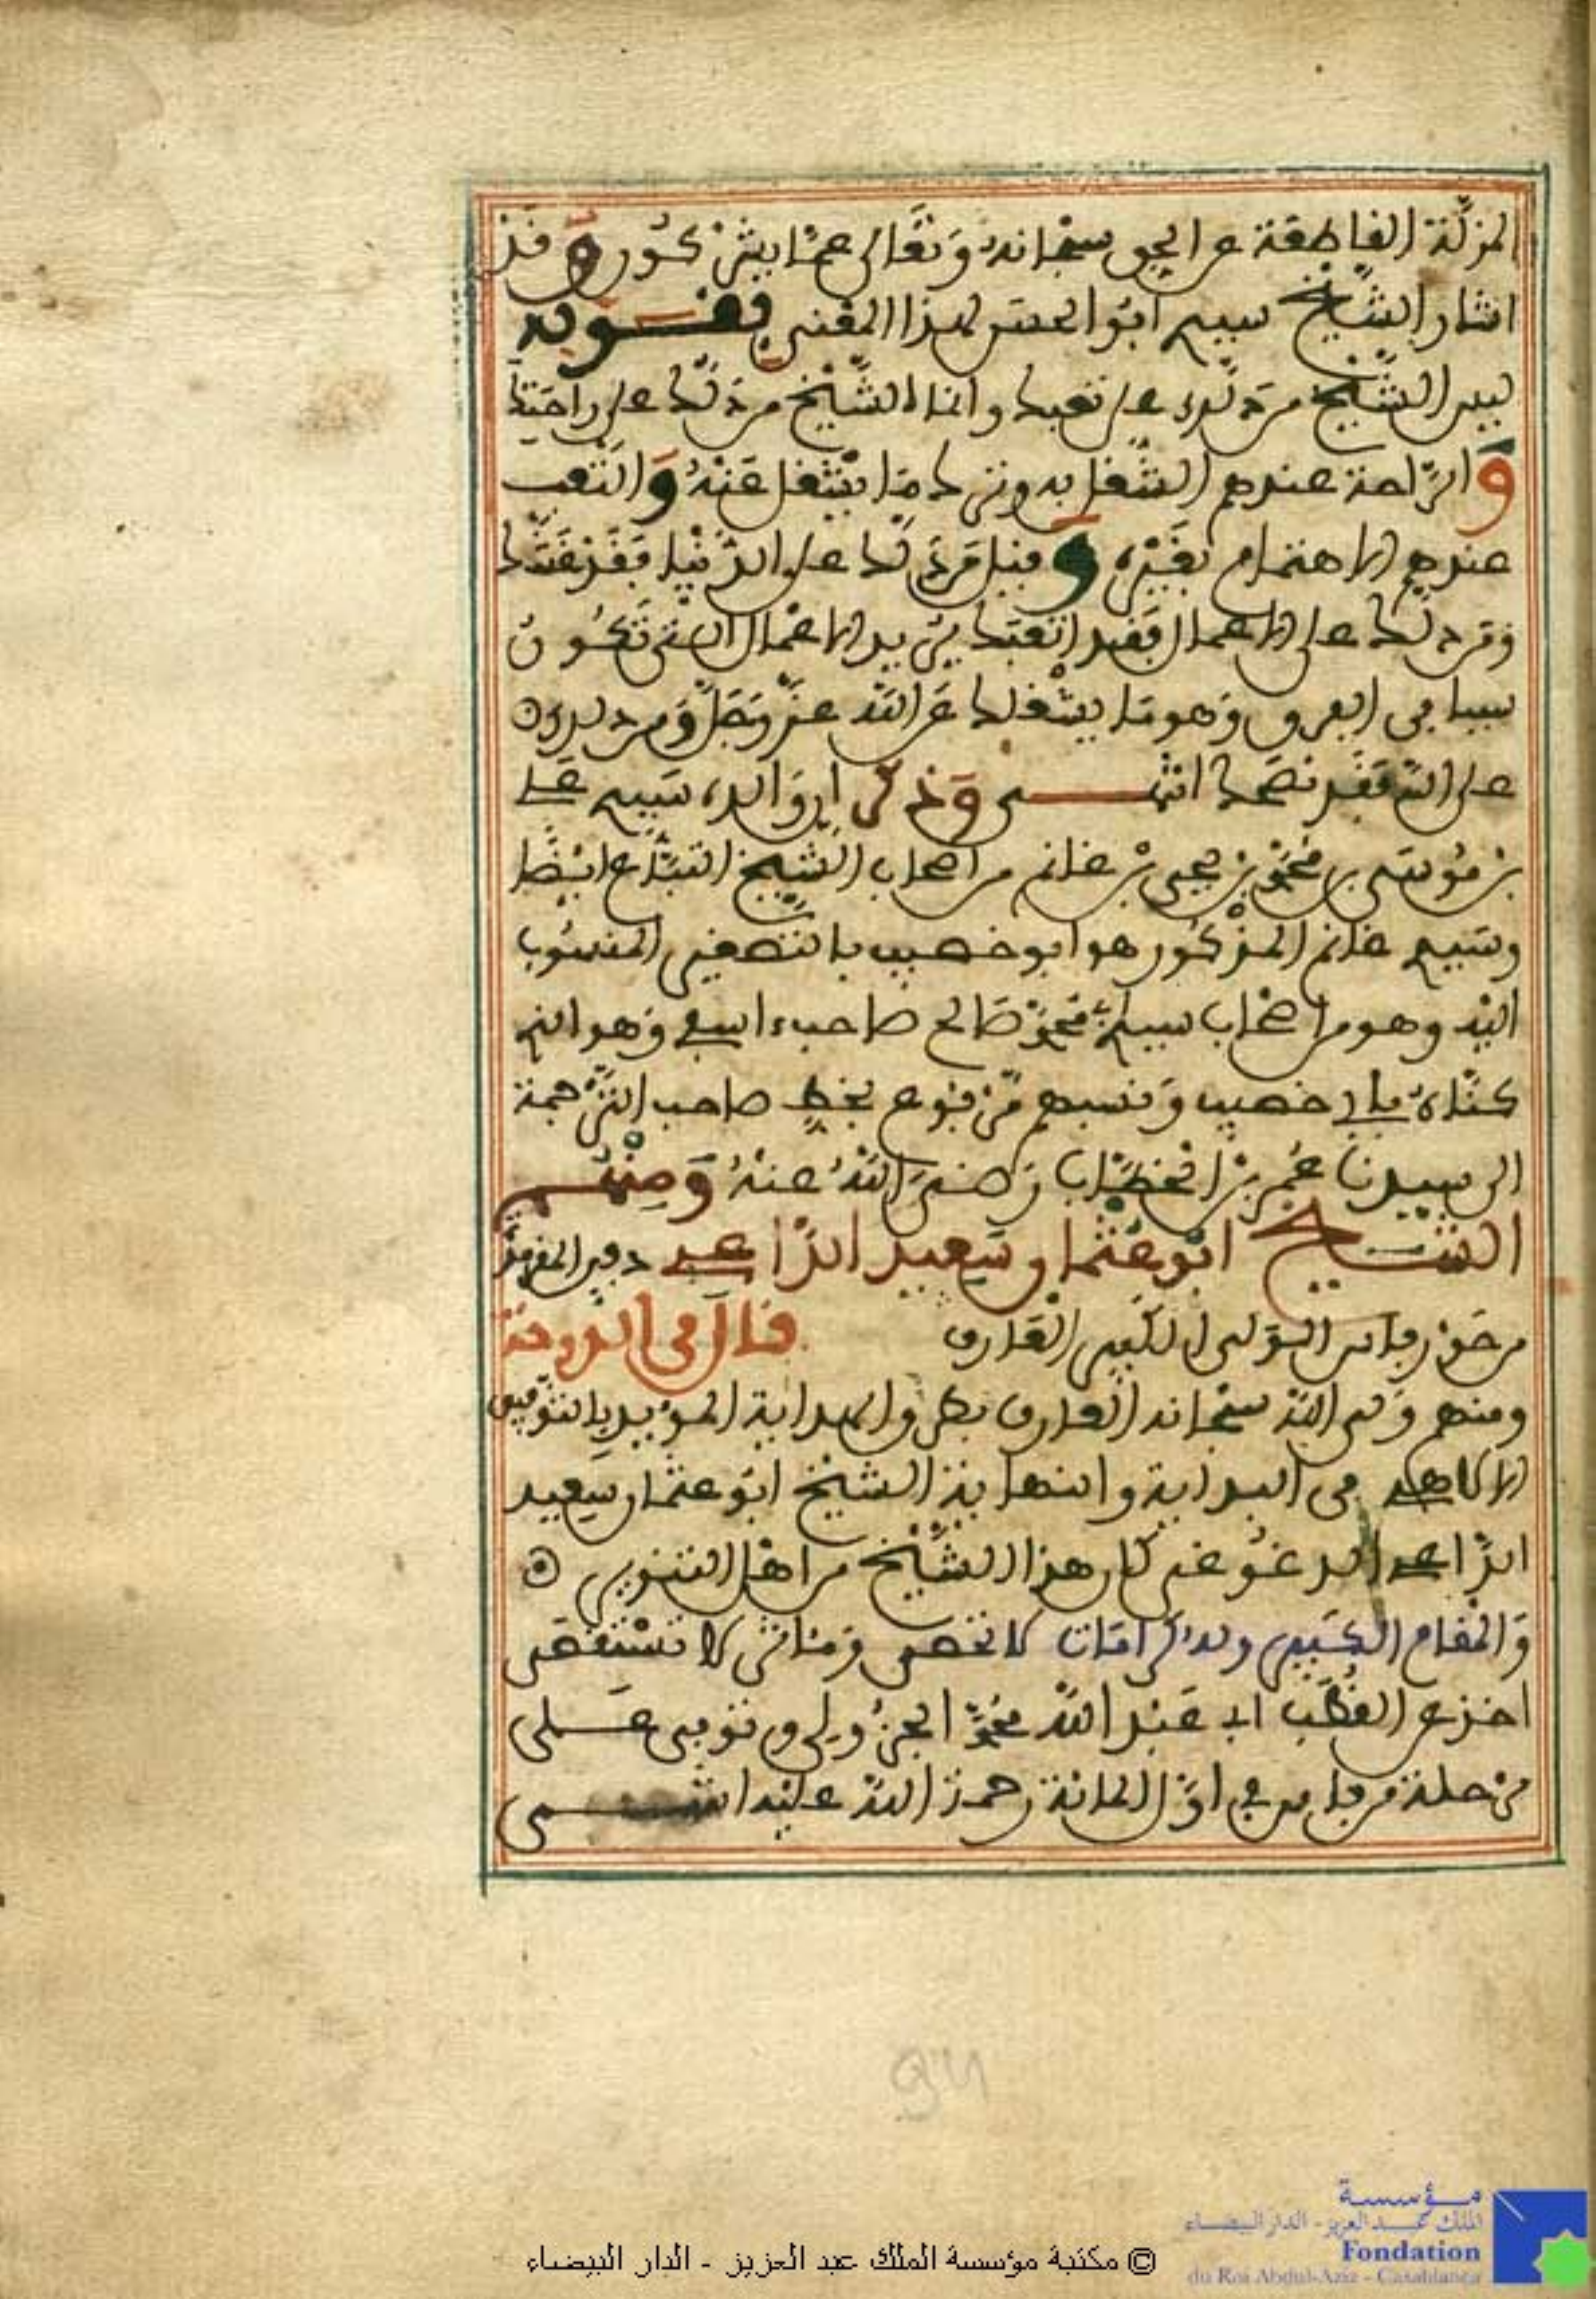 المزلة القاطعة عن الحق سبحانه وتعالى عما يشركون وقد
اشار الشيخ سيدي ابو الحسن لهذا المعنى بقوله
ليس الشيخ من دلك على تعبك وانما الشيخ من دلك على راحتك
والراحة عندهم الشغل به وترك ما يشغل عنه والتعب
عندهم الاهتمام بغيره وقيل من دلك على الدنيا فقد غشك
ومن دلك على الاعمال فقد اتعبك يريد الاعمال التي تكون
سببا في العرف وهو ما يشغلك عن الله عز وجل ومن دلك
على الله فقد نصحك انتهى وذكر ان والده سيدي علي
بن موسى بن محمد بن يحيى بن غانم من اصحاب الشيخ التباع ايضا
وسيدي غانم المذكور هو ابو خصيب بالتصغير المنسوب
اليه وهو من اصحاب سيدي محمد صالح صاحب اسفي وهو الذي
كناه بابي خصيب ونسبهم مرفوع بخط صاحب الترجمة
الى سيدنا عمر بن الخطاب رضي الله عنه ومنهم
الشيخ ابو عثمان سعيد الراعي دفين المقرمد
من حوز فاس الولي الكبير العارف قال في الدوحة
ومنهم ولي الله سبحانه العارف بطرق الهداية المويد بالتوفيق
الالاهي في البداية والنهاية الشيخ ابو عثمان سعيد
الراعي الدغوغي كان هذا الشيخ من اهل التنوير
والمقام الكبير وله كرامات لا تحصى ومئاثر لا تستقصى
اخذ عن القطب ابي عبد الله محمد الجزولي وتوفي على
مرحلة من فاس في اول المائة رحمة الله عليه انتهى
مؤسسة
الملك عبد العزيز - الدار البيضاء
Fondation
du Roi Abdul-Aziz - Casablanca
© مكتبة مؤسسة الملك عبد العزيز - الدار البيضاء